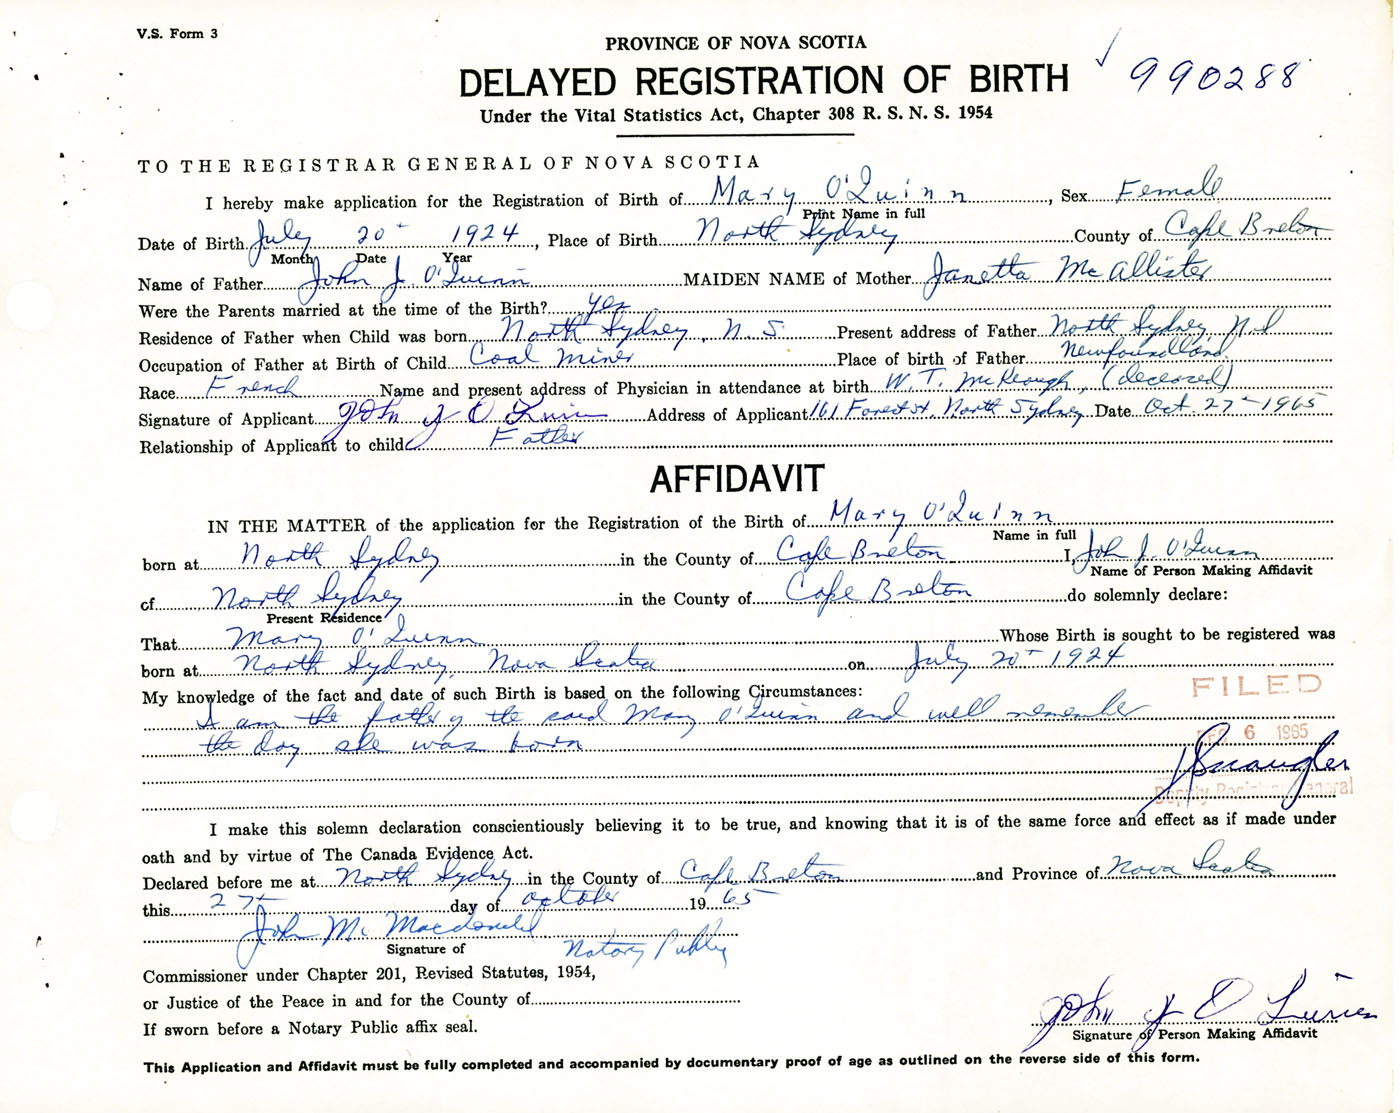 V.S. Form 3
PROVINCE OF NOVA SCOTIA
DELAYED REGISTRATION OF BIRTH
990288
Under the Vital Statistics Act, Chapter 308 R. S. N. S. 1954
TO THE REGISTRAR GENERAL OF NOVA SCOTIA
I hereby make application for the Registration of Birth of Mary O'Quinn, Sex Female
Print Name in full
Date of Birth July 20th 1924, Place of Birth North Sydney County of Cape Breton
Month Date Year
Name of Father John J. O'Quinn MAIDEN NAME of Mother Janetta McAllister
Were the Parents married at the time of the Birth? yes
Residence of Father when Child was born North Sydney, N.S. Present address of Father North Sydney, N.S
Occupation of Father at Birth of Child Coal Miner Place of birth of Father Newfoundland
Race French Name and present address of Physician in attendance at birth W. T. McKeough, (deceased)
Signature of Applicant John J O Quinn Address of Applicant 161 Forest st. North Sydney Date Oct. 27th 1965
Relationship of Applicant to child Father
AFFIDAVIT
IN THE MATTER of the application for the Registration of the Birth of Mary O'Quinn
Name in full
born at North Sydney in the County of Cape Breton I, John J. O'Quinn
Name of Person Making Affidavit
of North Sydney in the County of Cape Breton do solemnly declare:
Present Residence
That Mary O'Quinn Whose Birth is sought to be registered was
born at North Sydney, Nova Scotia on July 20th 1924
My knowledge of the fact and date of such Birth is based on the following Circumstances:
FILED
I am the father of the said Mary O'Quinn and well remember
the day she was born
6 1965
Deputy Registrar General
I make this solemn declaration conscientiously believing it to be true, and knowing that it is of the same force and effect as if made under
oath and by virtue of The Canada Evidence Act.
Declared before me at North Sydney in the County of Cape Breton and Province of Nova Scotia
this 27th day of October 1965
John M. Macdonald
Signature of Notary Public
Commissioner under Chapter 201, Revised Statutes, 1954,
or Justice of the Peace in and for the County of
If sworn before a Notary Public affix seal.
John J O Quinn
Signature of Person Making Affidavit
This Application and Affidavit must be fully completed and accompanied by documentary proof of age as outlined on the reverse side of this form.